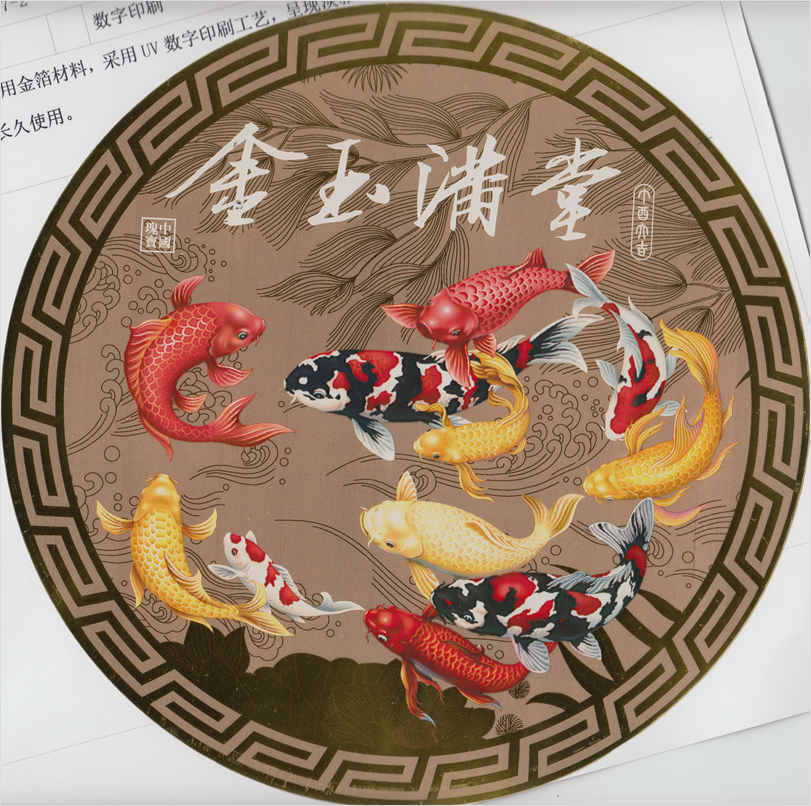 数字印刷
用金箔材料，采用 UV 数字印刷工艺，呈现
长久使用。
金玉满堂
中國
瑰寶